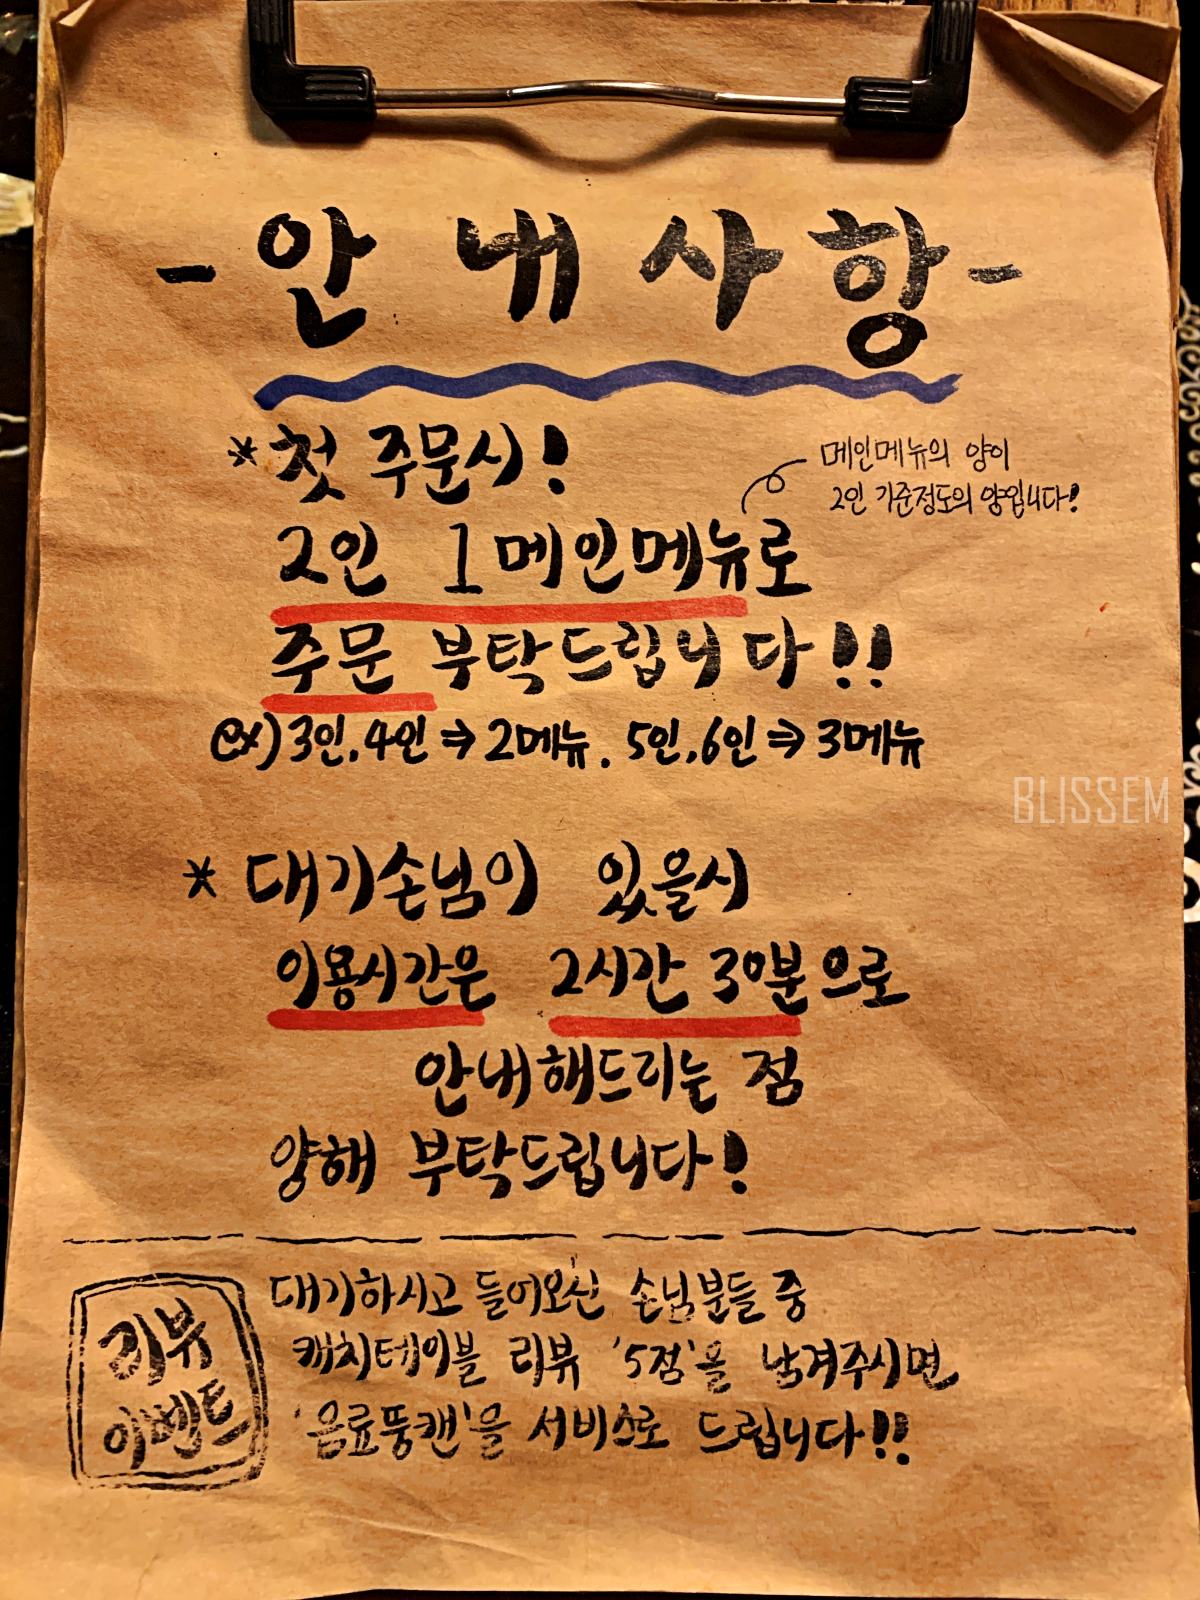 - 안내사항 -
* 첫 주문시!
메인메뉴의 양이
2인 기준정도의 양입니다!
2인 1메인메뉴로
주문 부탁드립니다!!
ex) 3인, 4인 ⇒ 2메뉴. 5인, 6인 ⇒ 3메뉴
BLISSEM
* 대기손님이 있을시
이용시간은 2시간 30분으로
안내해드리는 점
양해 부탁드립니다!
리뷰
이벤트
대기하시고 들어오신 손님분들 중
캐치테이블 리뷰 '5점'을 남겨주시면
'음료뚱캔'을 서비스로 드립니다!!